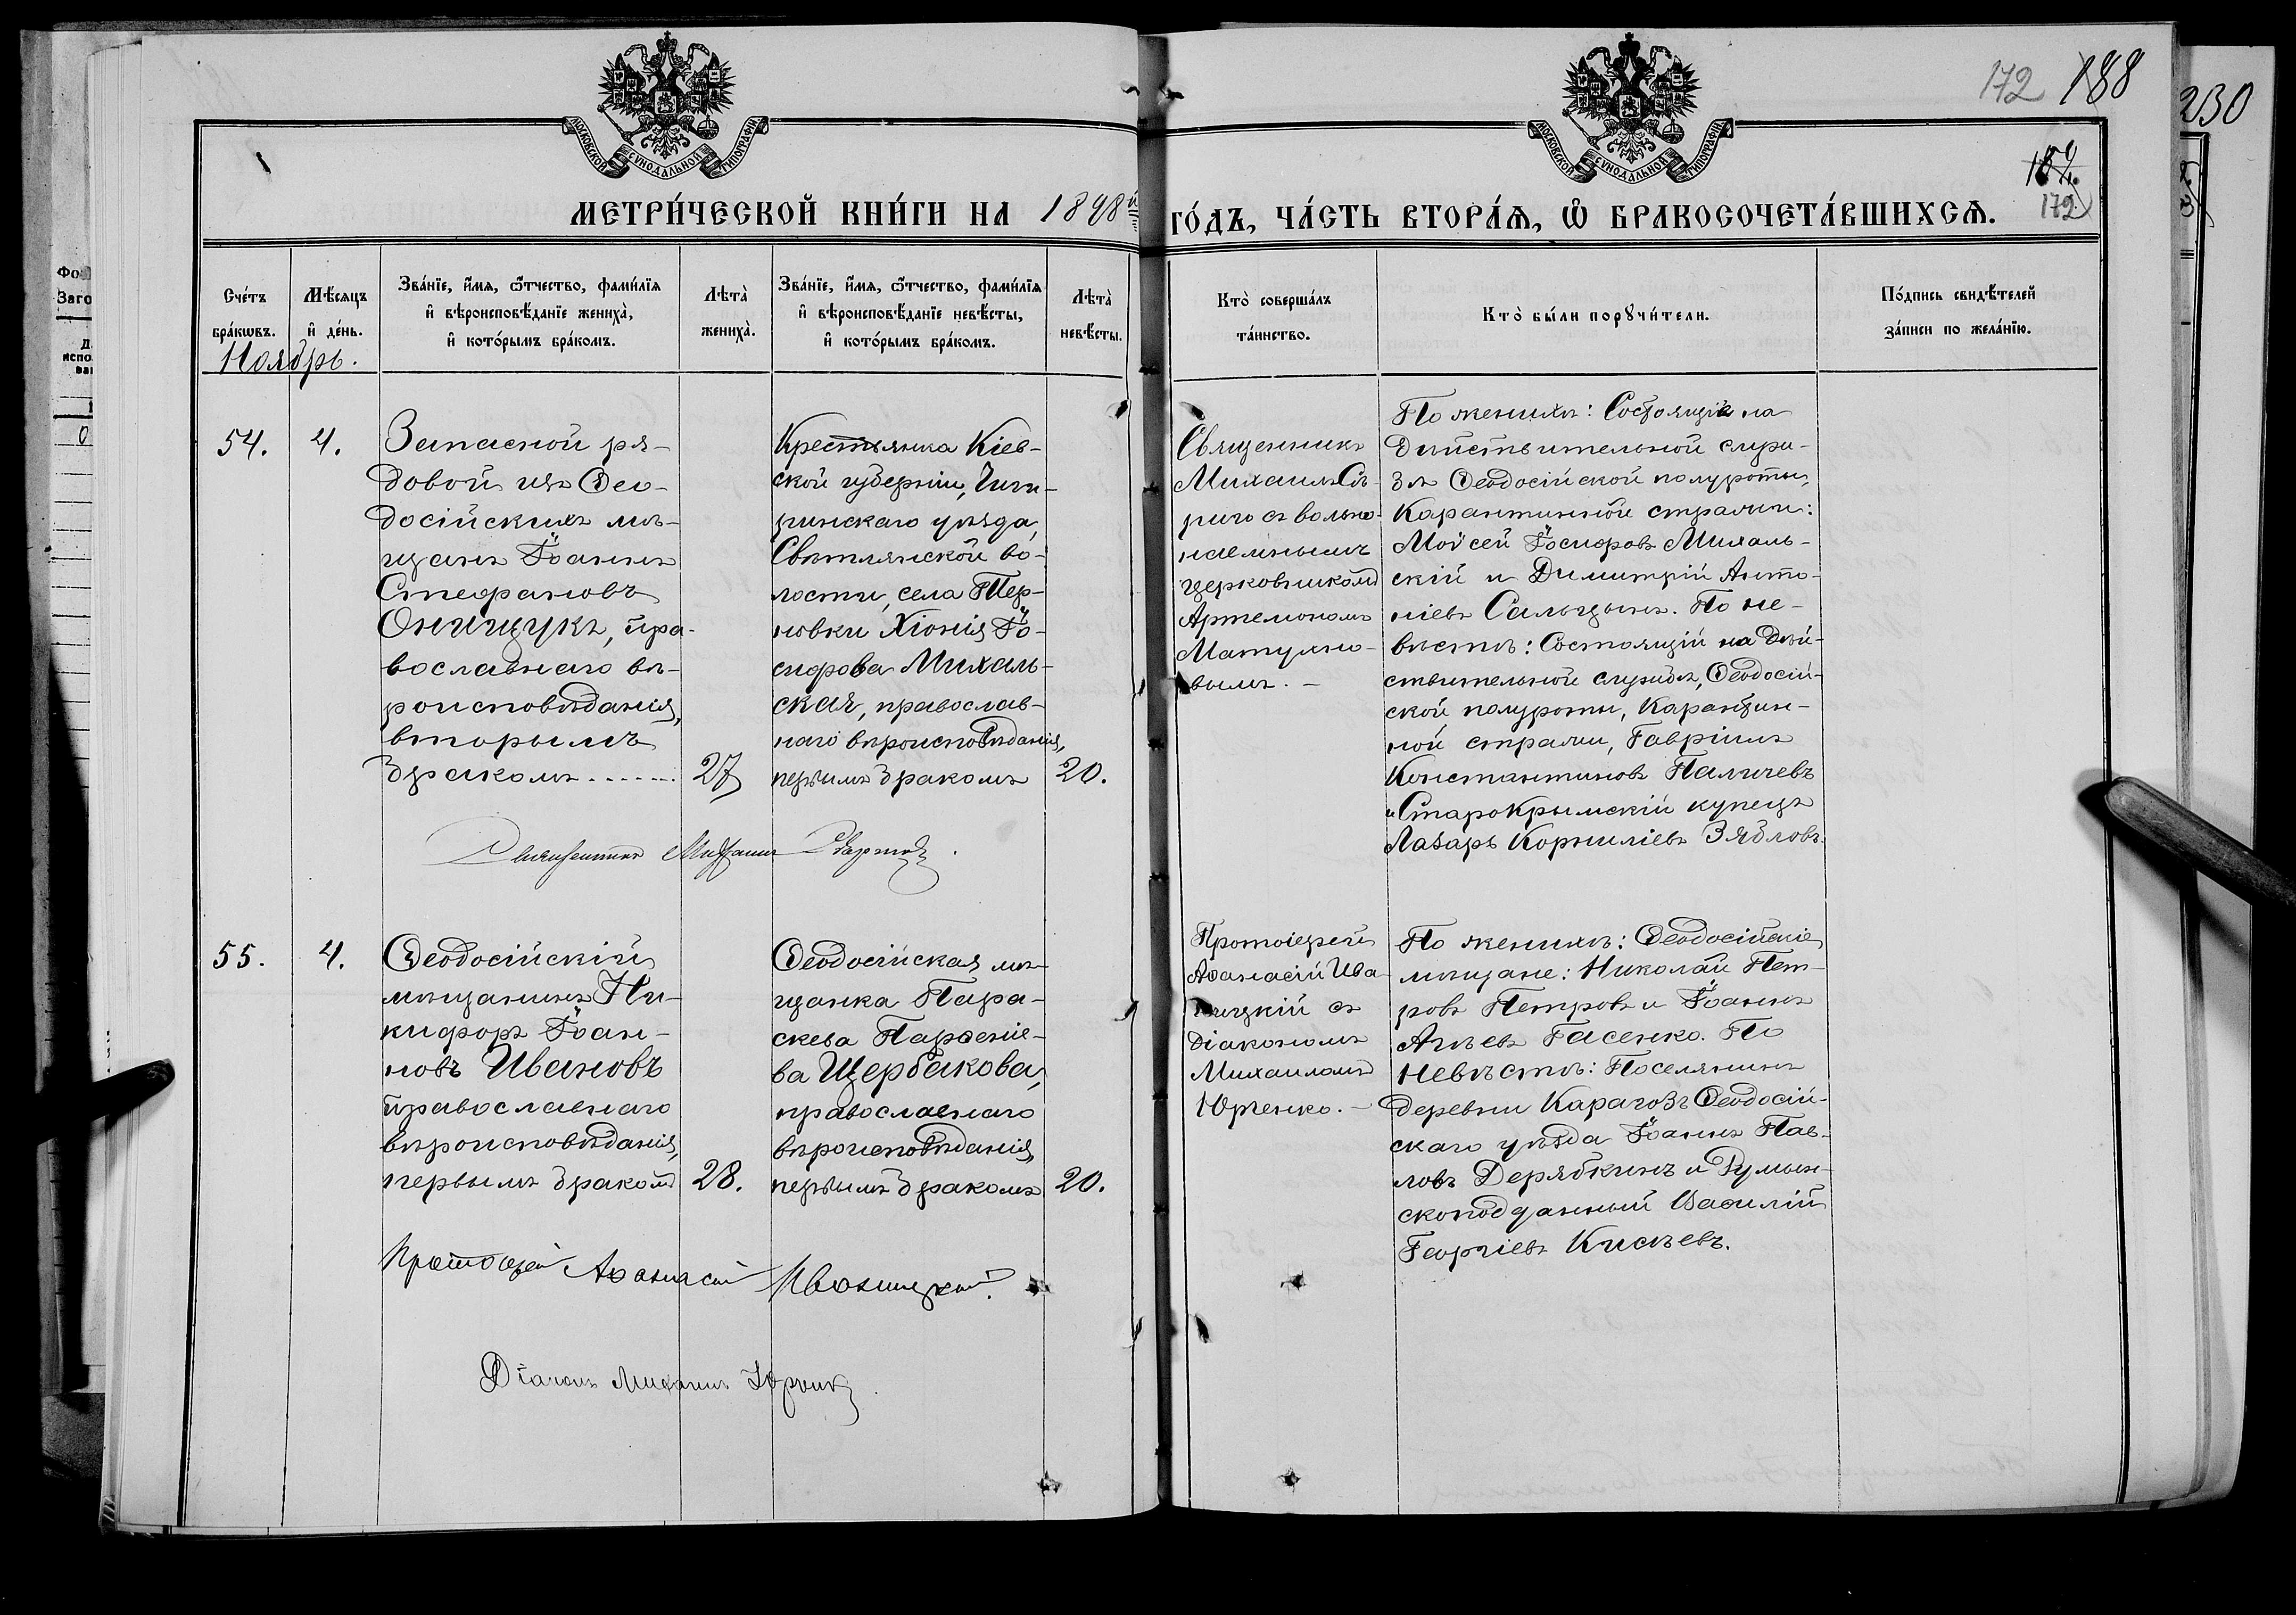 172 188
230
МОСКОВСКОЙ СѴНОДАЛЬНОЙ ТИПОГРАФІИ
МОСКОВСКОЙ СѴНОДАЛЬНОЙ ТИПОГРАФІИ
172
МЕТРИ́ЧЕСКОЙ КНИ́ГИ НА 1898й
ГО́ДЪ, ЧА́СТЬ ВТОРА́Ѧ, Ѡ҆ БРАКОСОЧЕТА́ВШИХСѦ.
Сче́тъ
бра́кѡвъ.
Мѣ́сяцъ
и҆ де́нь.
Зва́нїе, и҆́мя, ѻ҆́тчество, фами́лїя
и҆ вѣроисповѣ́данїе жениха̀,
и҆ кото́рымъ бра́комъ.
Лѣта̀
жениха̀.
Зва́нїе, и҆́мя, ѻ҆́тчество, фами́лїя
и҆ вѣроисповѣ́данїе невѣ́сты,
и҆ кото́рымъ бра́комъ.
Лѣта̀
невѣ́сты.
Кто̀ соверша́лъ
та́инство.
Кто̀ бы́ли порꙋчи́тели.
По́дпись свидѣ́телей
за́писи по жела́нїю.
Ноябрь.
54.
4.
Запасной ря-
довой изъ Ѳео-
досійскихъ мѣ-
щанъ Іоаннъ
Стефановъ
Онищукъ, пра-
вославнаго вѣ-
роисповѣданія,
вторымъ
бракомъ......
27
Крестьянка Кіев-
ской губерніи, Чиги-
ринскаго уѣзда,
Свѣтлянской во-
лости, села Тер-
новки Хіонія Іо-
сифова Михаль-
ская, православ-
наго вѣроисповѣданія,
первымъ бракомъ
20.
Священникъ
Михаилъ
съ вольно-
наемнымъ
церковникомъ
Артемономъ
Матухно-
вымъ. –
По женихѣ: Состоящіе на
дѣйствительной служ-
бѣ Ѳеодосійской полуроты,
Карантинной стражи:
Моѵсей Іосифовъ Михаль-
скій и Димитрій Анто-
ніевъ Сальцынъ. По не-
вѣстѣ: Состоящій на Дѣй-
ствительной службѣ, Ѳеодосій-
ской полуроты, Карантин-
ной стражи, Гавріилъ
Константиновъ Паличевъ
и Старокрымскій купецъ
Лазарь Корниліевъ Зябловъ.
Священникъ Михаилъ
55.
4.
Ѳеодосійскій
мѣщанинъ Ни-
кифоръ Іоан-
новъ Ивановъ
православнаго
вѣроисповѣданія,
первымъ бракомъ
28.
Ѳеодосійская мѣ-
щанка Пара-
скева Парѳеніе-
ва Щербакова,
православнаго
вѣроисповѣданія,
первымъ бракомъ
20.
Протоіерей
Аѳанасій Ива-
ницкій съ
діакономъ
Михаиломъ
Юрченко. –
По женихѣ: Ѳеодосійскіе
мѣщане: Николай Пет-
ровъ Петровъ и Іоаннъ
Агѣевъ Гасенко. По
невѣстѣ: Поселянинъ
деревни Карагозъ Ѳеодосій-
скаго уѣзда Іоаннъ Пав-
ловъ Дерябкинъ и Румын-
скоподданный Василій
Георгіевъ Кисѣевъ.
Протоіерей Аѳанасій Иваницкій.
Діаконъ Михаилъ Юрченко.